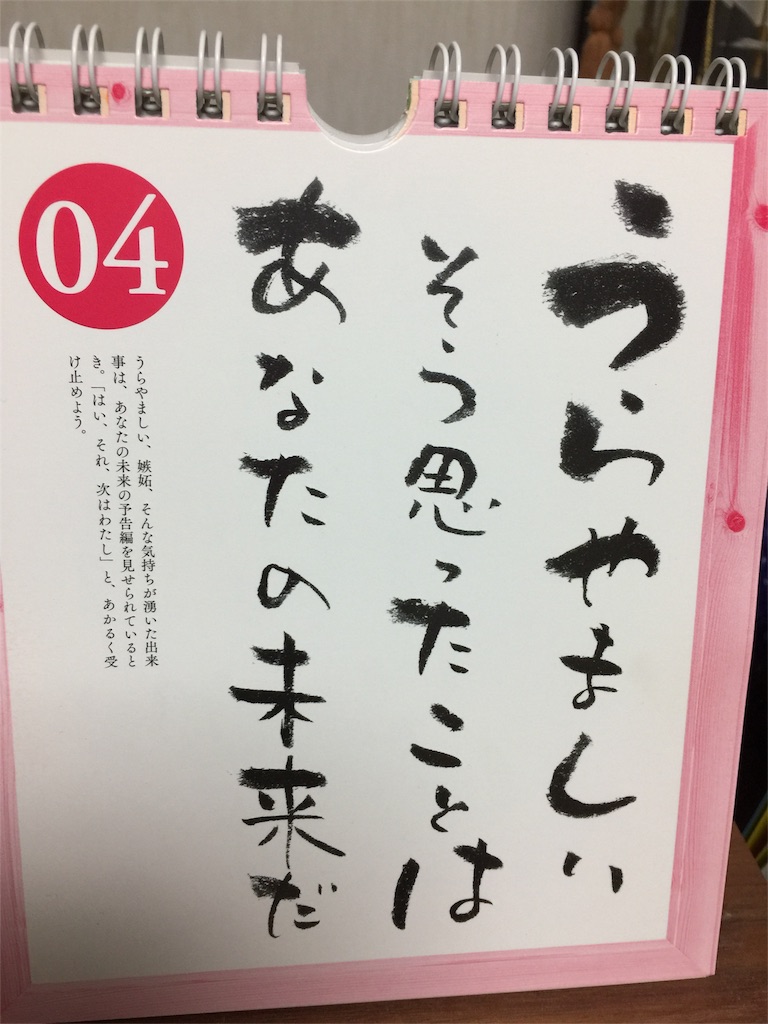 うらやましい
そう思ったことは
あなたの未来だ
04
うらやましい、嫉妬、そんな気持ちが湧いた出来
事は、あなたの未来の予告編を見せられていると
き。「はい、それ、次はわたし」と、あかるく受
け止めよう。